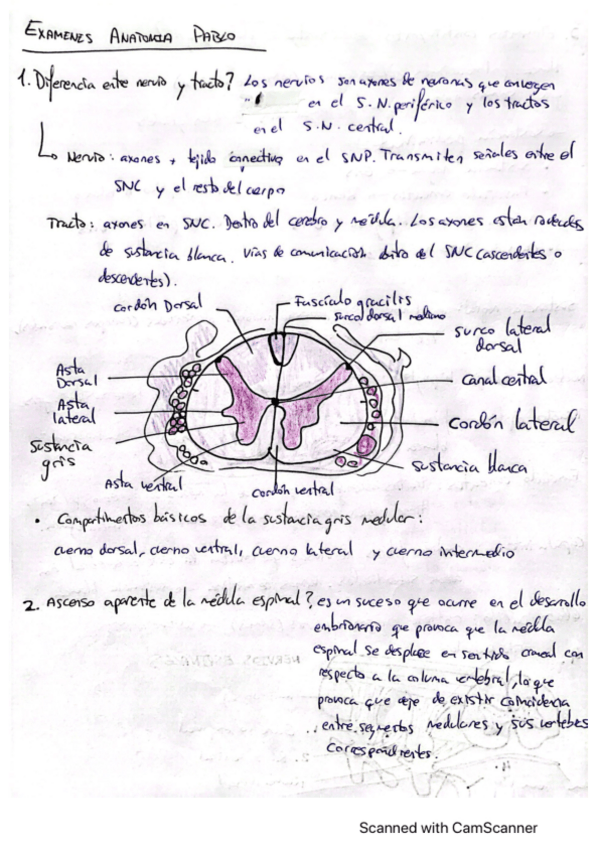 EXAMENES ANATOMIA PABLO
1. Diferencia ente nervio y tracto? Los nervios son axones de neuronas que convergen
en el S.N. periférico y los tractos
en el S.N. central.
Nervio: axones + tejido conectivo en el SNP. Transmiten señales entre el
SNC y el resto del cuerpo
Tracto: axones en SNC. Dentro del cerebro y médula. Los axones están rodeados
de sustancia blanca. Vías de comunicación dentro del SNC (ascendentes o
descendentes).
cordón Dorsal
Fascículo gracilis
surco dorsal mediano
surco lateral
dorsal
Asta
Dorsal
canal central
Asta
lateral
cordón lateral
Sustancia
gris
sustancia blanca
Asta ventral
cordón ventral
• Compartimentos básicos de la sustancia gris medular:
cuerno dorsal, cuerno ventral, cuerno lateral y cuerno intermedio
2. Ascenso aparente de la médula espinal?, es un suceso que ocurre en el desarrollo
embrionario que provoca que la médula
espinal se desplace en sentido craneal con
respecto a la columna vertebral, lo que
provoca que deje de existir coincidencia
entre segmentos medulares y sus vértebras
correspondientes.
Scanned with CamScanner